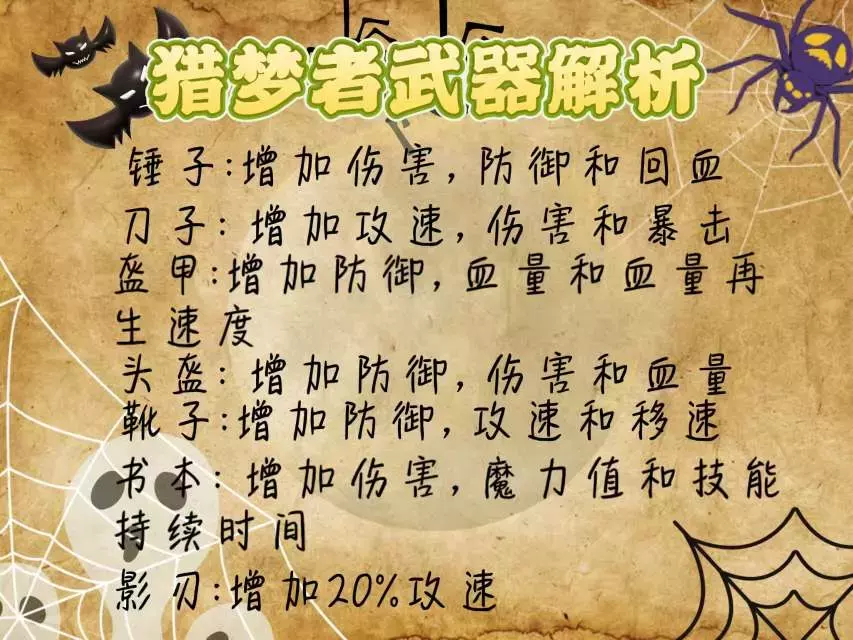 猎梦者武器解析
锤子:增加伤害,防御和回血
刀子:增加攻速,伤害和暴击
盔甲:增加防御,血量和血量再
生速度
头盔:增加防御,伤害和血量
靴子:增加防御,攻速和移速
书本:增加伤害,魔力值和技能
持续时间
影刃:增加20%攻速